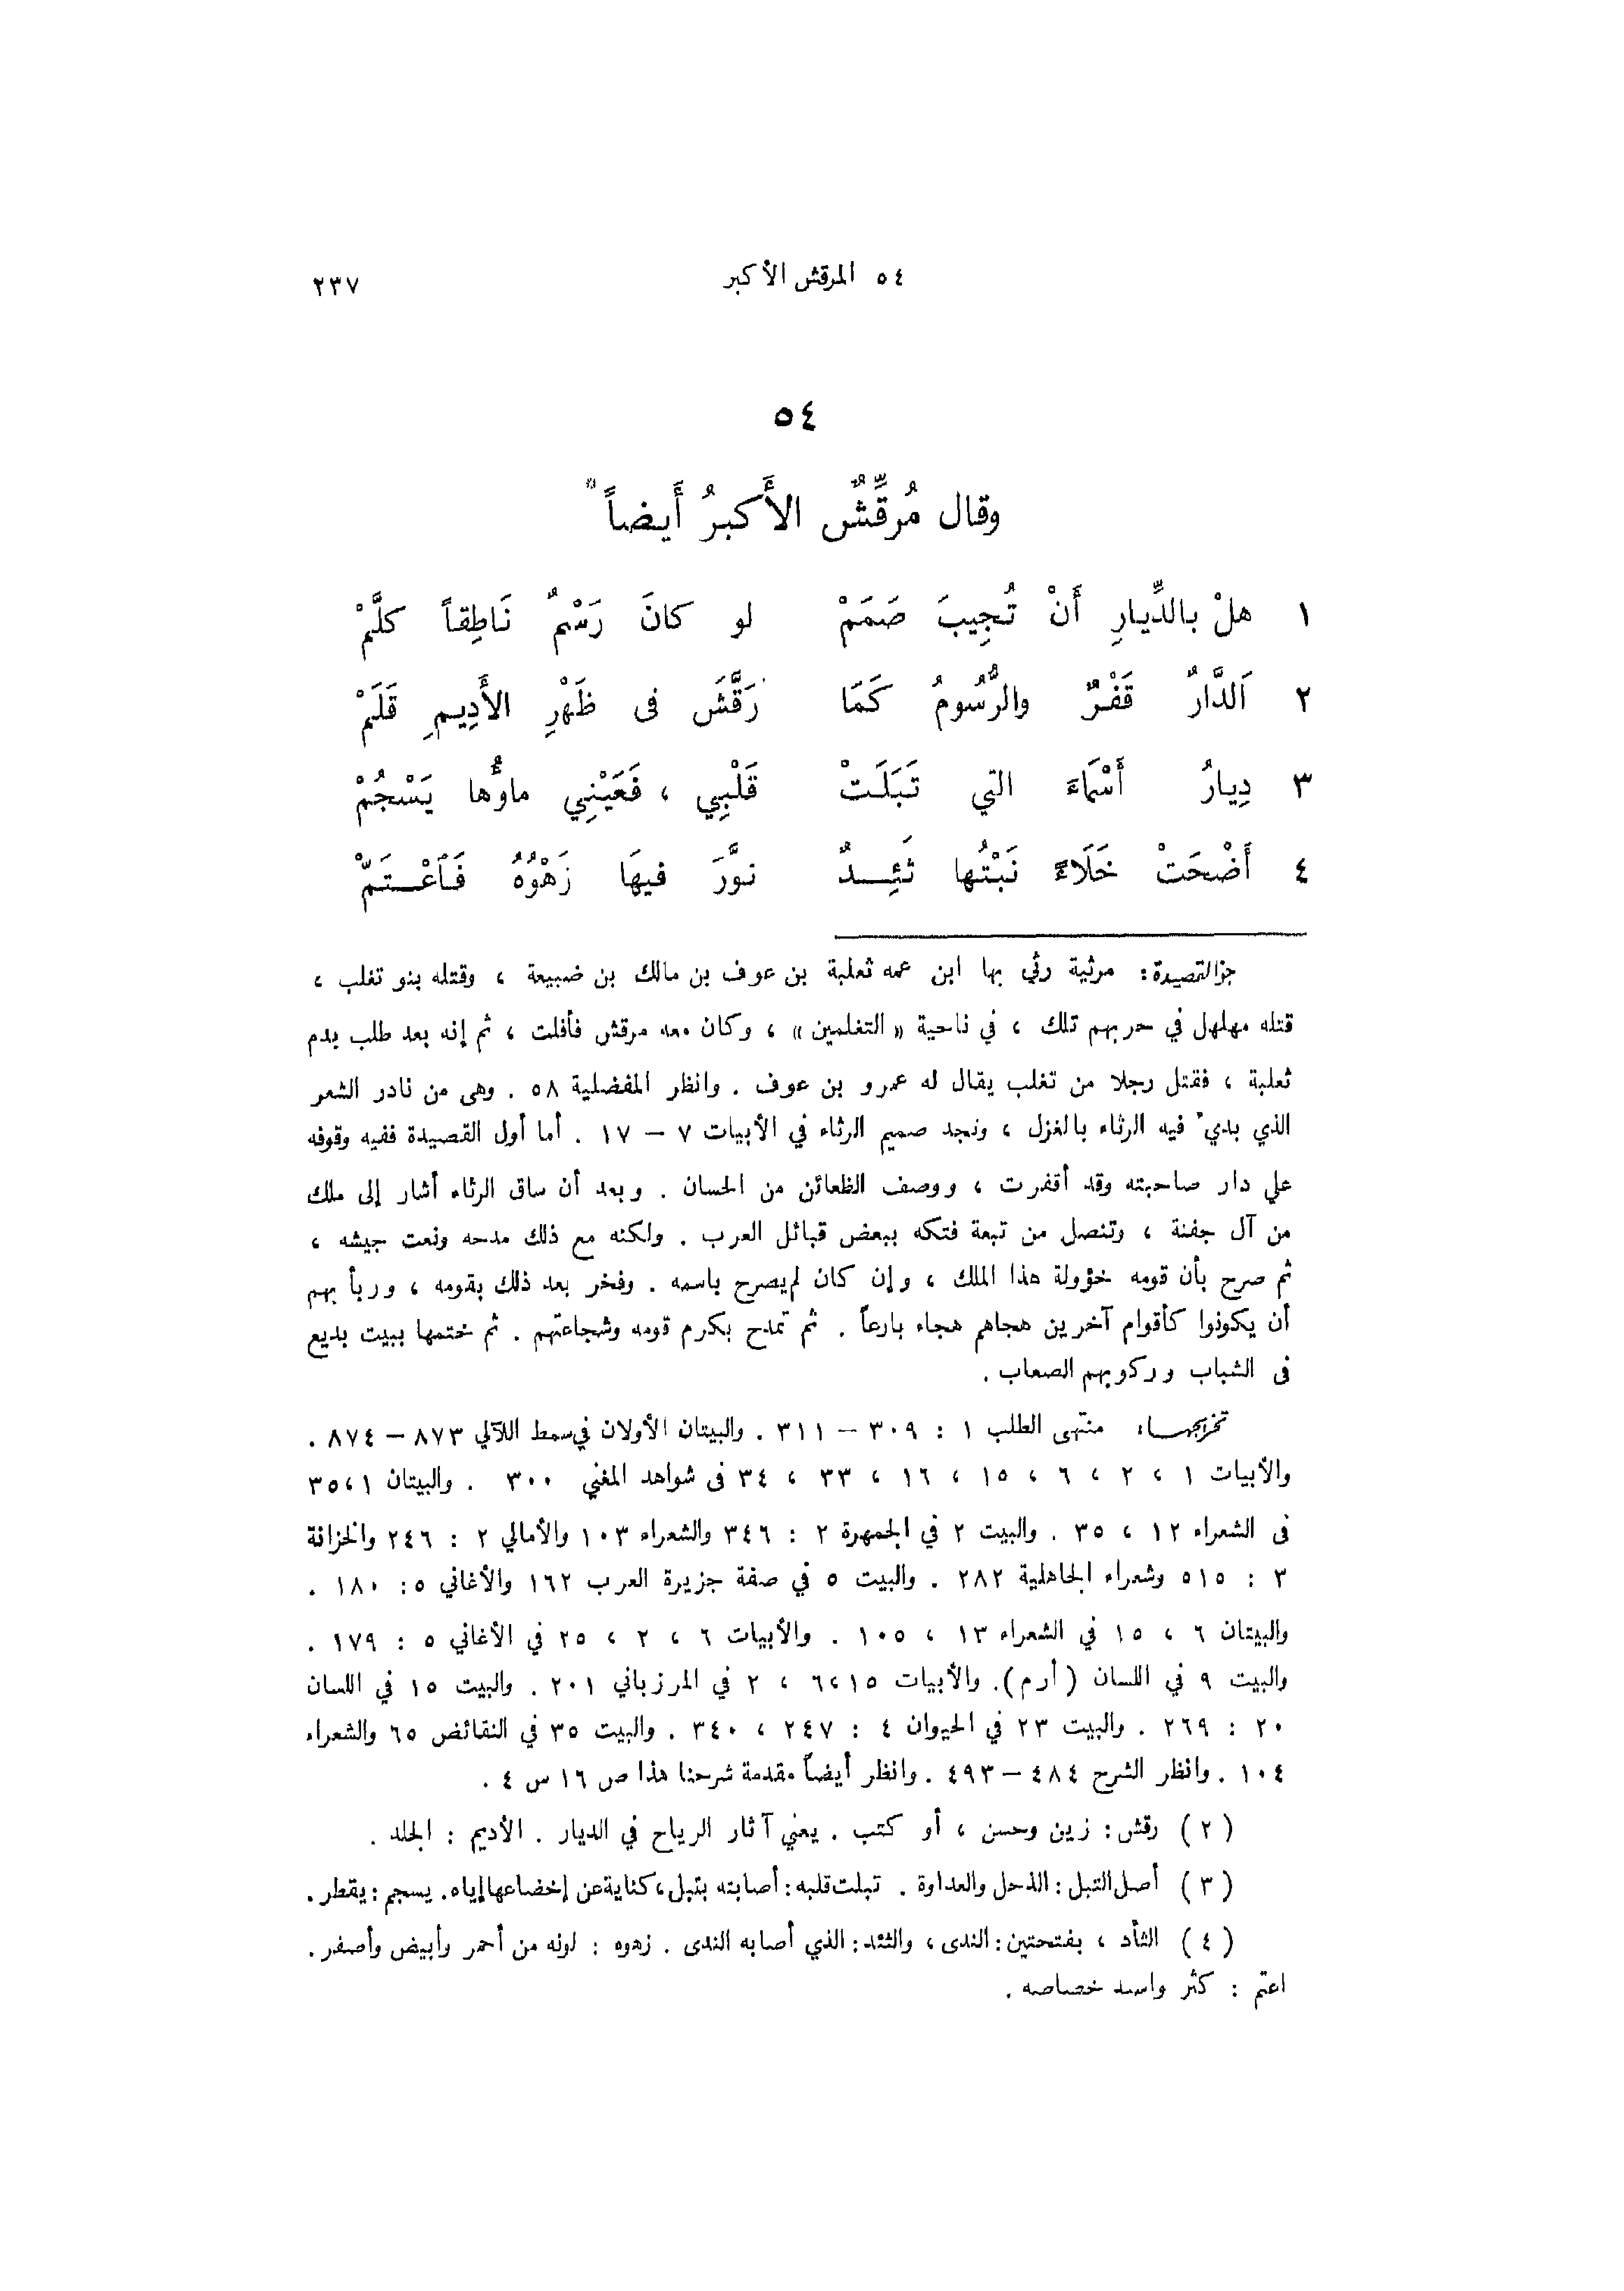 ٥٤ المرقش الأكبر ٢٣٧
٥٤
وقال مُرَقِّشٌ الأَكبرُ أَيضاً *
١ هلْ بالدِّيارِ أَنْ تُجِيبَ صَمَمْ لو كانَ رَسْمٌ نَاطِقاً كلَّمْ
٢ اَلدَّارُ قَفْرٌ والرُّسُومُ كَمَا رَقَّشَ فى ظَهْرِ الأَدِيمِ قَلَمْ
٣ دِيارُ أَسْمَاءَ التي تَبَلَتْ قَلْبِي ، فَعَيْنِي ماؤُها يَسْجُمْ
٤ أَضْحَتْ خَلَاءً نَبْتُها ثَئِدٌ نوَّرَ فيهَا زَهْوُهُ فَاعْتَمّْ
جو القصيدة: مرثية رثي بها ابن عمه ثعلبة بن عوف بن مالك بن ضبيعة ، وقتله بنو تغلب ،
قتله مهلهل في حربهم تلك ، في ناحية «التغلمين» ، وكان معه مرقش فأفلت ، ثم إنه بعد طلب بدم
ثعلبة ، فقتل رجلا من تغلب يقال له عمرو بن عوف . وانظر المفضلية ٥٨ . وهى من نادر الشعر
الذي بديء فيه الرثاء بالغزل ، ونجد صميم الرثاء في الأبيات ٧ – ١٧ . أما أول القصيدة ففيه وقوفه
علي دار صاحبته وقد أقفرت ، ووصف الظعائن من الحسان . وبعد أن ساق الرثاء أشار إلى ملك
من آل جفنة ، وتنصل من تبعة فتكه ببعض قبائل العرب . ولكنه مع ذلك مدحه ونعت جيشه ،
ثم صرح بأن قومه خؤولة هذا الملك ، وإن كان لم يصرح باسمه . وفخر بعد ذلك بقومه ، وربأ بهم
أن يكونوا كأقوام آخرين هجاهم هجاء بارعاً . ثم تمدح بكرم قومه وشجاعتهم . ثم ختمها ببيت بديع
فى الشباب وركوبهم الصعاب .
تخريجها: منتهى الطلب ١ : ٣٠٩ – ٣١١ . والبيتان الأولان في سمط اللآلي ٨٧٣ – ٨٧٤ .
والأبيات ١ ، ٢ ، ٦ ، ١٥ ، ١٦ ، ٣٣ ، ٣٤ فى شواهد المغني ٣٠٠ . والبيتان ١، ٣٥
فى الشعراء ١٢ ، ٣٥ . والبيت ٢ في الجمهرة ٢ : ٣٤٦ والشعراء ١٠٣ والأمالي ٢ : ٢٤٦ والخزانة
٣ : ٥١٥ وشعراء الجاهلية ٢٨٢ . والبيت ٥ في صفة جزيرة العرب ١٦٢ والأغاني ٥: ١٨٠ .
والبيتان ٦ ، ١٥ في الشعراء ١٣ ، ١٠٥ . والأبيات ٦ ، ٢ ، ٢٥ في الأغاني ٥ : ١٧٩ .
والبيت ٩ في اللسان (أرم). والأبيات ٦،١٥ ، ٢ في المرزباني ٢٠١ . والبيت ١٥ في اللسان
٢٠ : ٢٦٩ . والبيت ٢٣ في الحيوان ٤ : ٢٤٧ ، ٣٤٠ . والبيت ٣٥ في النقائض ٦٥ والشعراء
١٠٤ . وانظر الشرح ٤٨٤ – ٤٩٣ . وانظر أيضاً مقدمة شرحنا هذا ص ١٦ س ٤ .
(٢) رقش: زين وحسن ، أو كتب . يعني آثار الرياح في الديار . الأديم : الجلد .
(٣) أصل التبل: الذحل والعداوة . تبلت قلبه: أصابته بتبل، كناية عن إخضاعها إياه. يسجم: يقطر.
(٤) الثأد ، بفتحتين: الندى ، والثئد: الذي أصابه الندى . زهوه : لونه من أحمر وأبيض وأصفر .
اعتم : كثر واسد خصاصه .